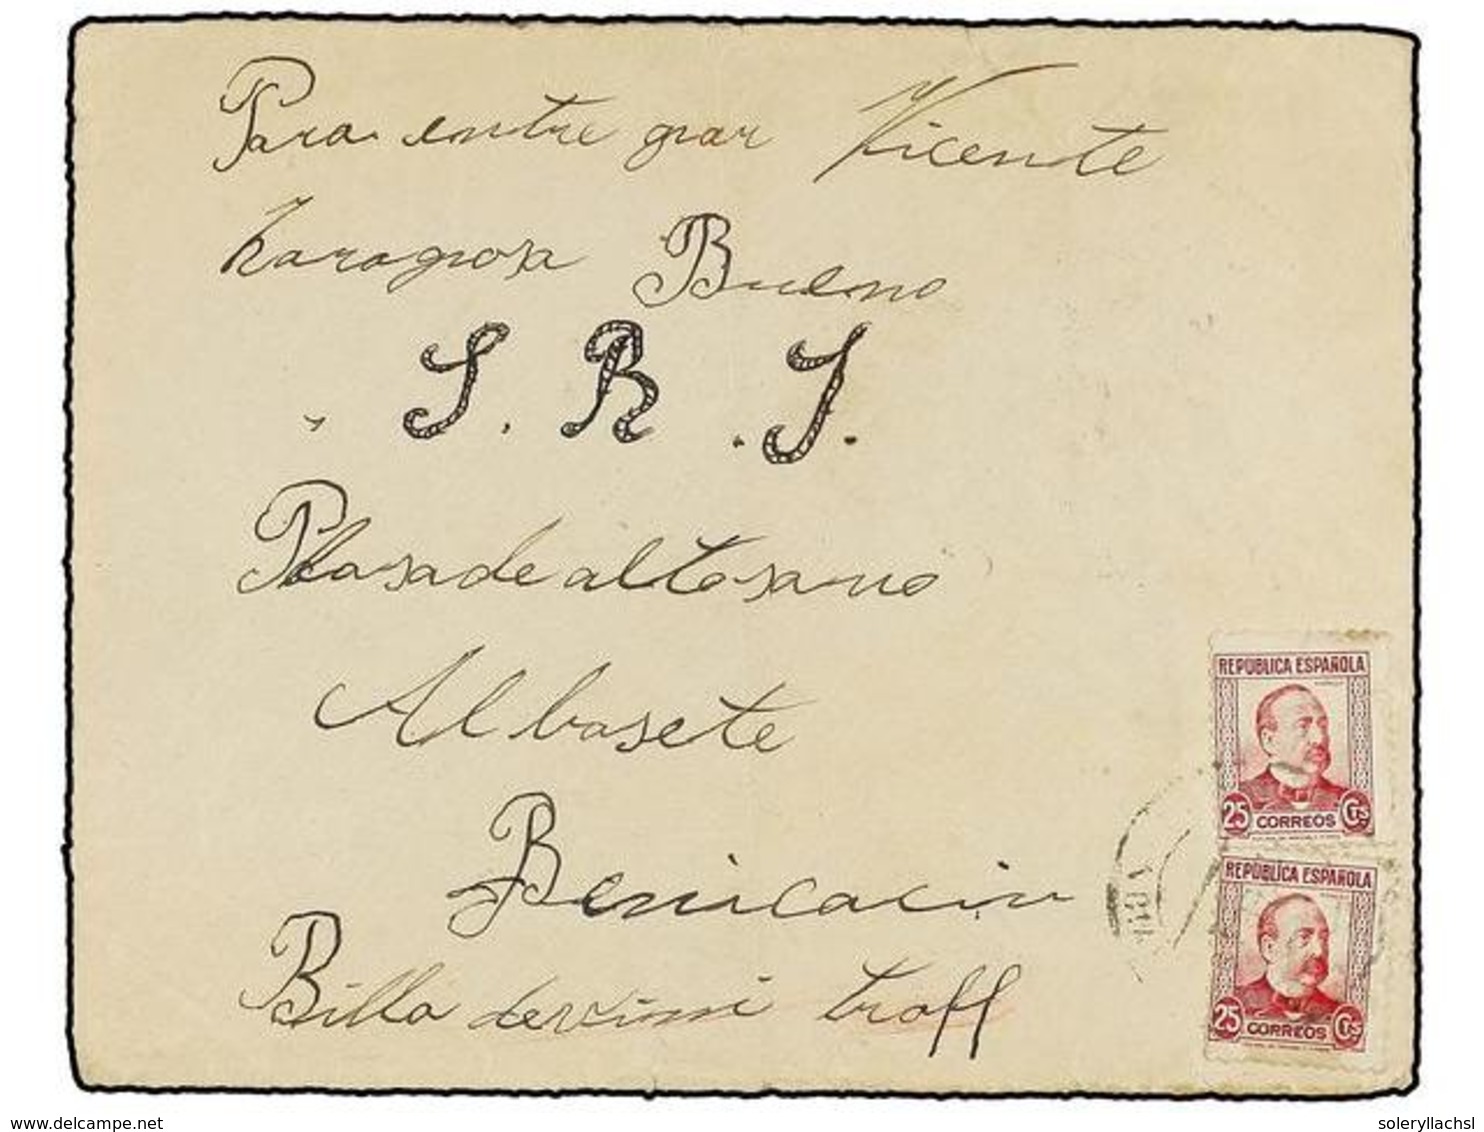 Para entre gar Vicente
Zaragosa Bueno
S. R. I.
Plasa de altosano
Albasete
Benicacin
Billa dervimi troff
REPÚBLICA ESPAÑOLA
25 CORREOS Cts
REPÚBLICA ESPAÑOLA
25 CORREOS Cts
delcampe.net
soleryllachsl